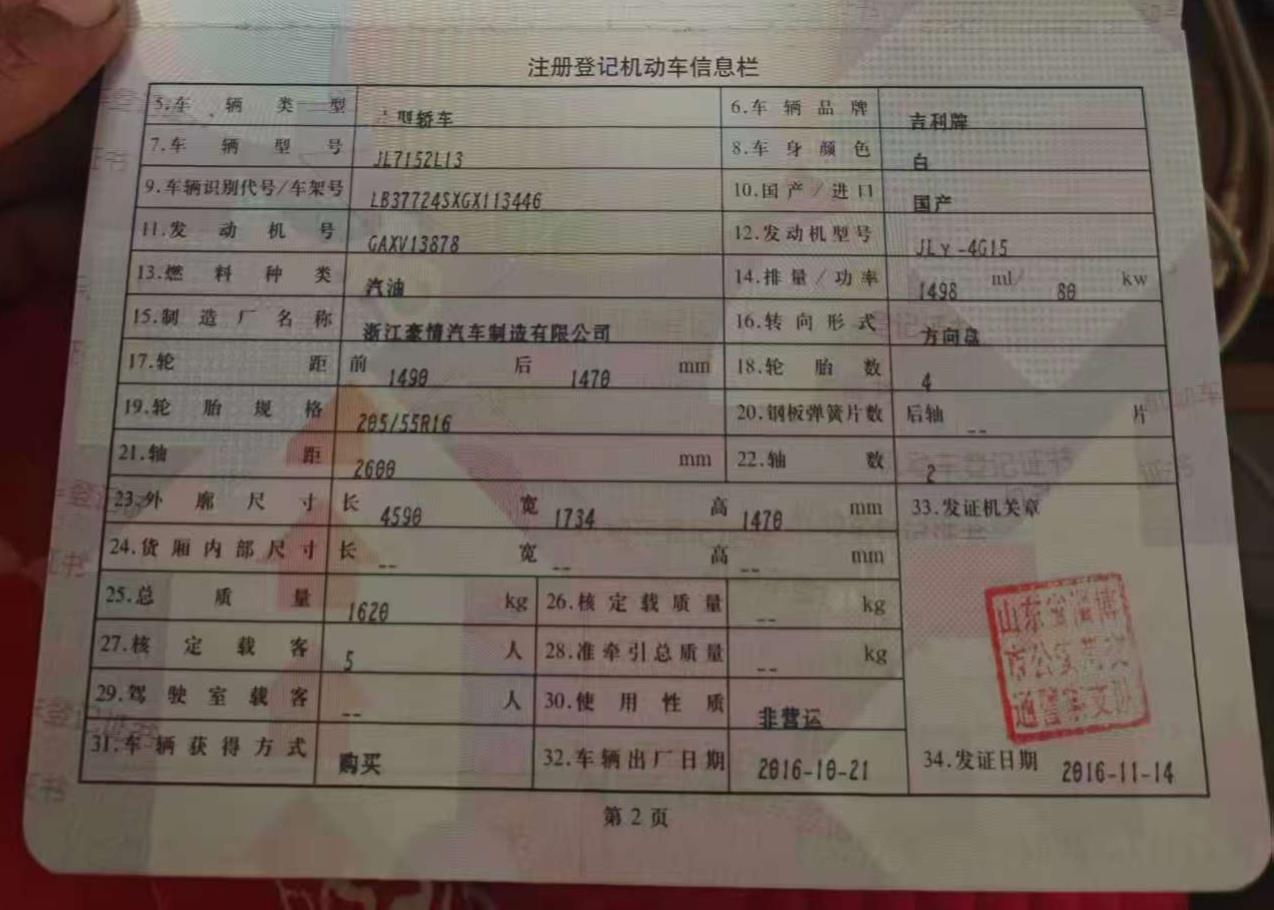 注册登记机动车信息栏
5.车辆类型 型轿车 6.车辆品牌 吉利牌
7.车辆型号 JL7152L13 8.车身颜色 白
9.车辆识别代号/车架号 LB37724SXGX113446 10.国产/进口 国产
11.发动机号 GAXV13878 12.发动机型号 JLγ-4G15
13.燃料种类 汽油 14.排量/功率 1498 ml/ 80 kw
15.制造厂名称 浙江豪情汽车制造有限公司 16.转向形式 方向盘
17.轮距 前 1490 后 1470 mm 18.轮胎数 4
19.轮胎规格 205/55R16 20.钢板弹簧片数 后轴 -- 片
21.轴距 2600 mm 22.轴数 2
23.外廓尺寸 长 4590 宽 1734 高 1470 mm 33.发证机关章
24.货厢内部尺寸 长 -- 宽 -- 高 -- mm
25.总质量 1620 kg 26.核定载质量 -- kg
山东省淄博
27.核定载客 5 人 28.准牵引总质量 -- kg
市公安局交
29.驾驶室载客 -- 人 30.使用性质 非营运
通警察支队
31.车辆获得方式 购买 32.车辆出厂日期 2016-10-21 34.发证日期 2016-11-14
第2页